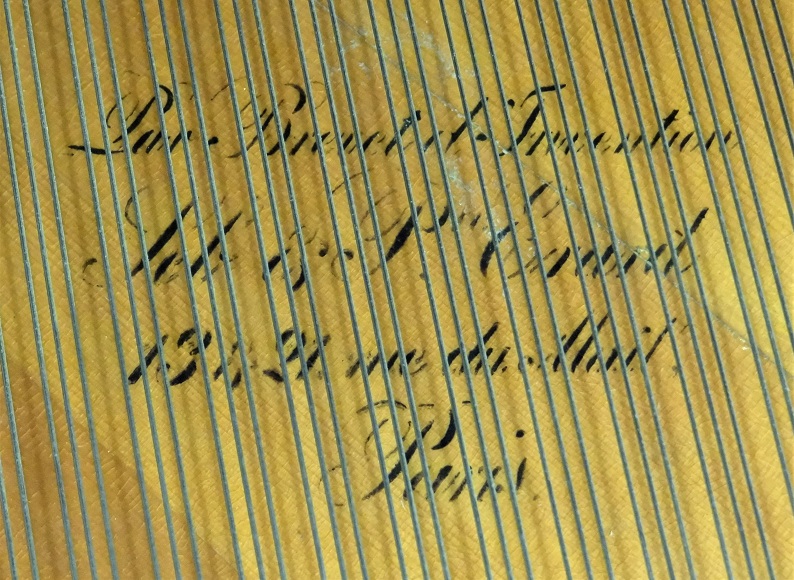 Par Brevet d'Invention
Seb. & P. Erard
13 & 21 rue du Mail
Paris.